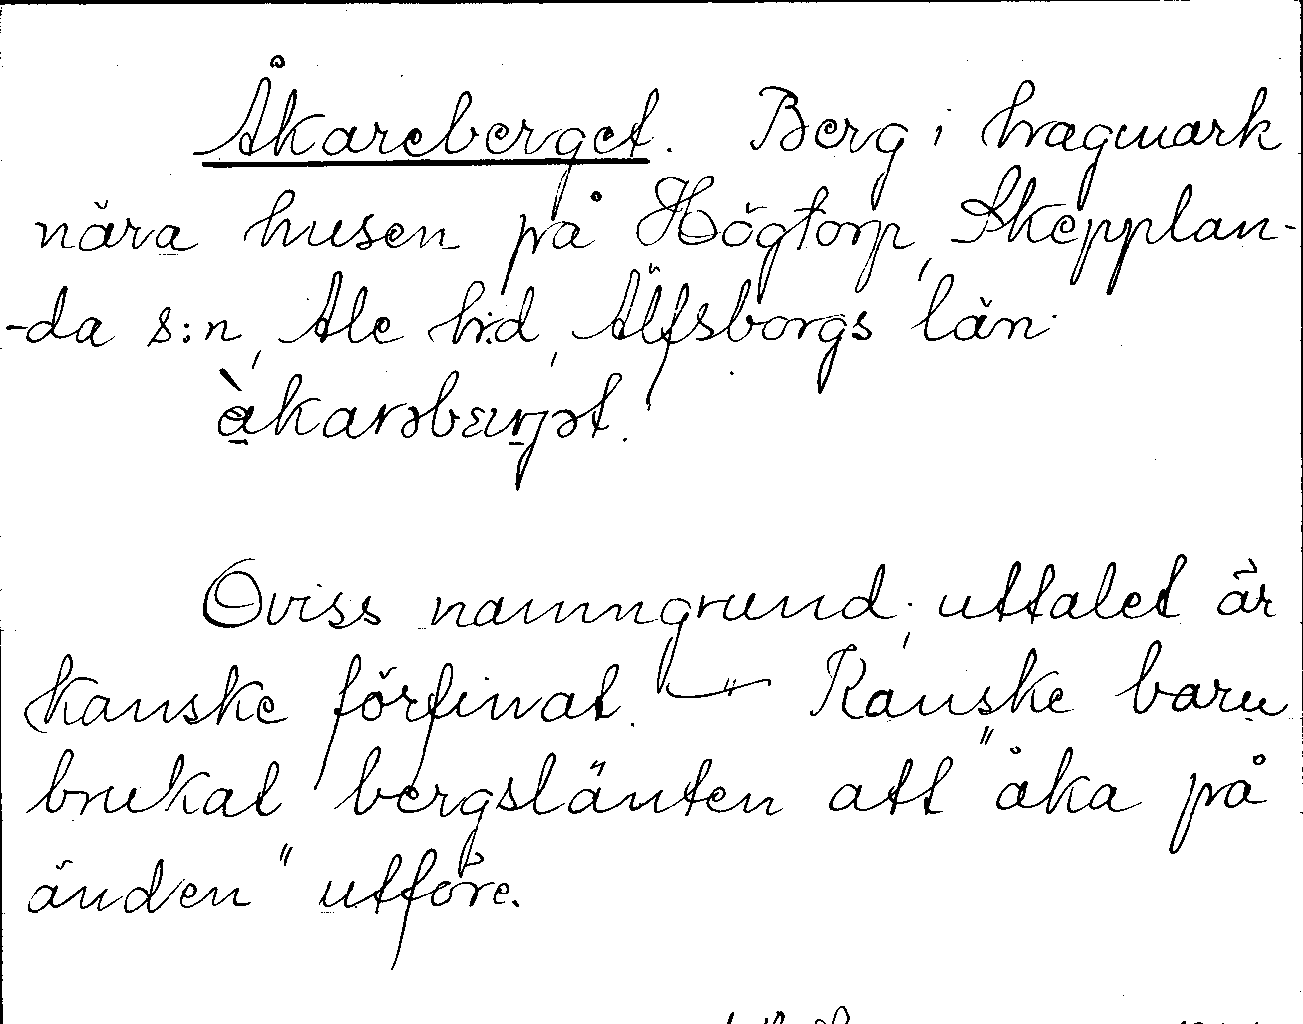 Åkareberget. Berg i hagmark
nära husen på Högtorp, Skepplan-
-da s:n, Ale h:d, Älfsborgs län.
àkarəbærjət.
Oviss namngrund; uttalet är
kanske förfinat. — " — Kanske barn
brukat bergslänten att "åka på
änden" utföre.